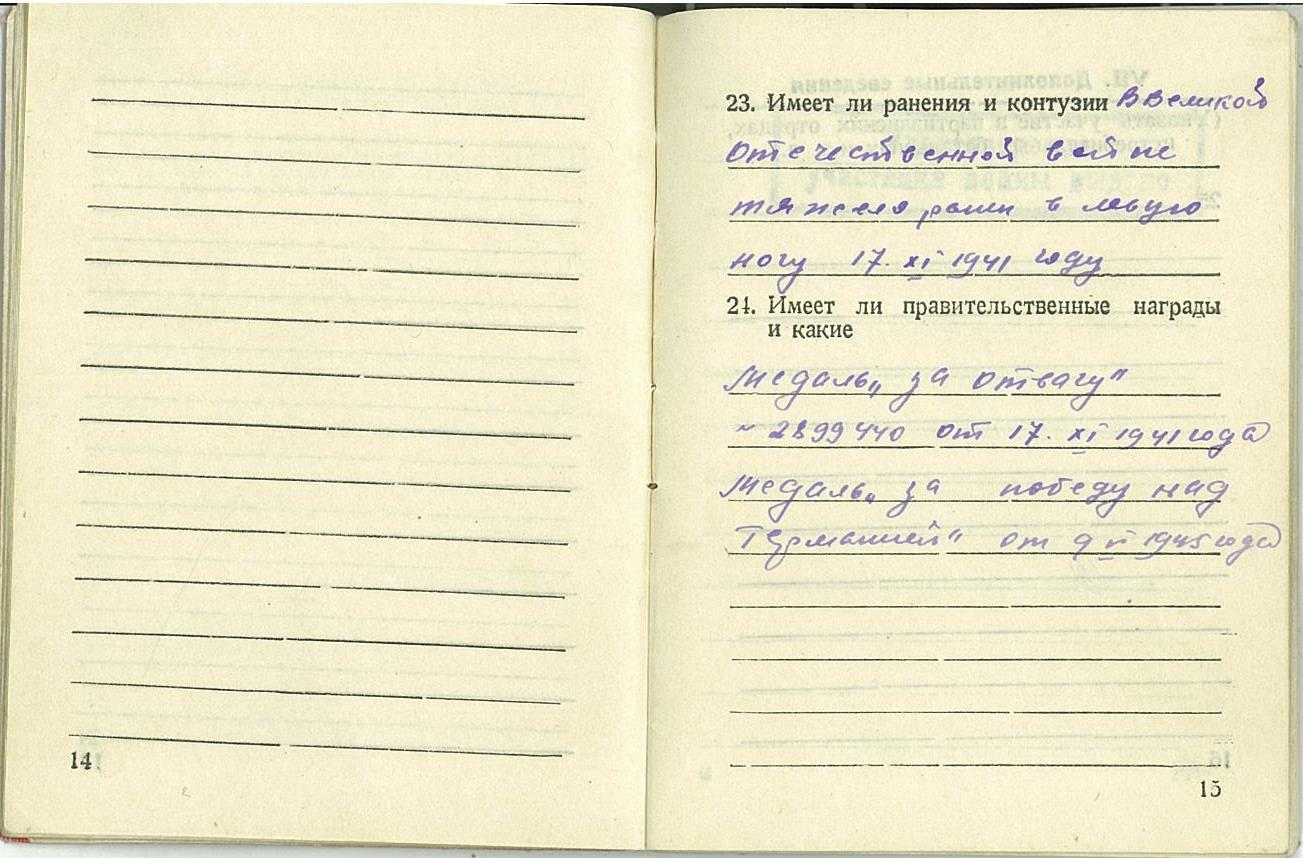 23. Имеет ли ранения и контузии В Великой
отечественной войне
тяжело ранен в левую
ногу 17. XI 1941 году
24. Имеет ли правительственные награды
и какие
Медаль „за отвагу"
~ 2899440 от 17. XI 1941 года
Медаль „за победу над
Германией" от 9 1945 года
14
15